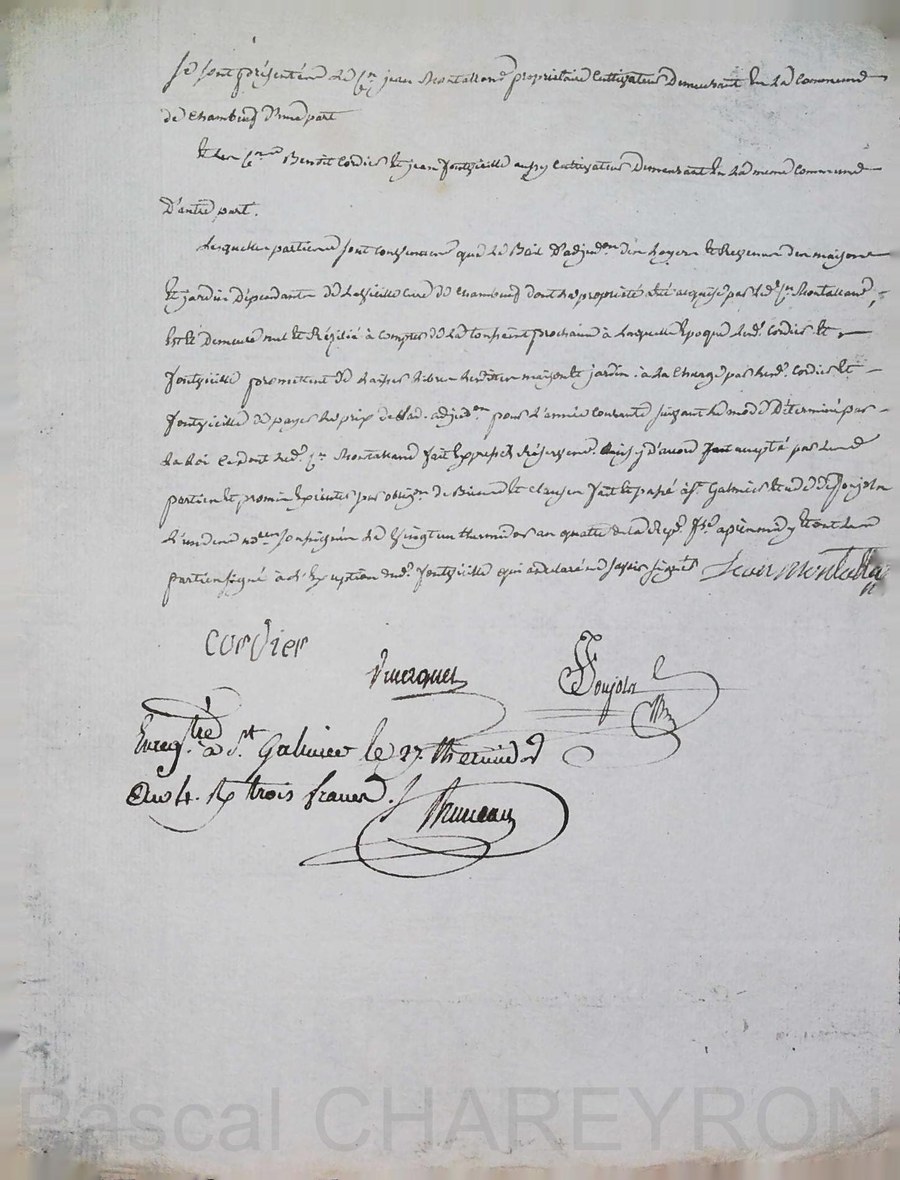 Se sont présentés le C.en jean Montalland propriétaire cultivateur demeurant en la commune
de Chambeuf d'une part
et les C.ens Benoit Cordier et jean fontvieille aussy cultivateurs demeurant en la même commune
d'autre part.
Lesquelles parties sont convenues que le Bail d'adju.on des Loyers et Revenus des maisons
et jardin dépendants de la vieille cure de Chambeuf dont la propriété a été acquise par led. C.en Montalland
est et demeure nul et Résilié à compter de la toussaint prochaine à laquelle Epoque lesd. Cordier et
fontvieille promettent de laisser libre lesdites maison et jardin. à la charge par lesd. Cordier et
fontvieille de payer le prix de lad. adju.on pour l'année courante suivant le mode déterminé par
la Loi ce dont led. C.en Montalland fait Expresses Réserves. Ainsy d'accord accepté par les
parties et promis Exécuter par oblig.on de Biens et clauses fait et passé à S.t Galmier Etude de Soujols
L'un des no.res soussignés le Vingt un thermidor an quatre de la Rép. f.se après midy et ont les
parties signé à l'Exception dud. fontvieille qui a déclaré ne savoir signer Jean Montallan
cordier
Soujols
Enreg.tré à S.t Galmier le 27. thermidor
an 4. R trois francs.
Pascal CHAREYRON